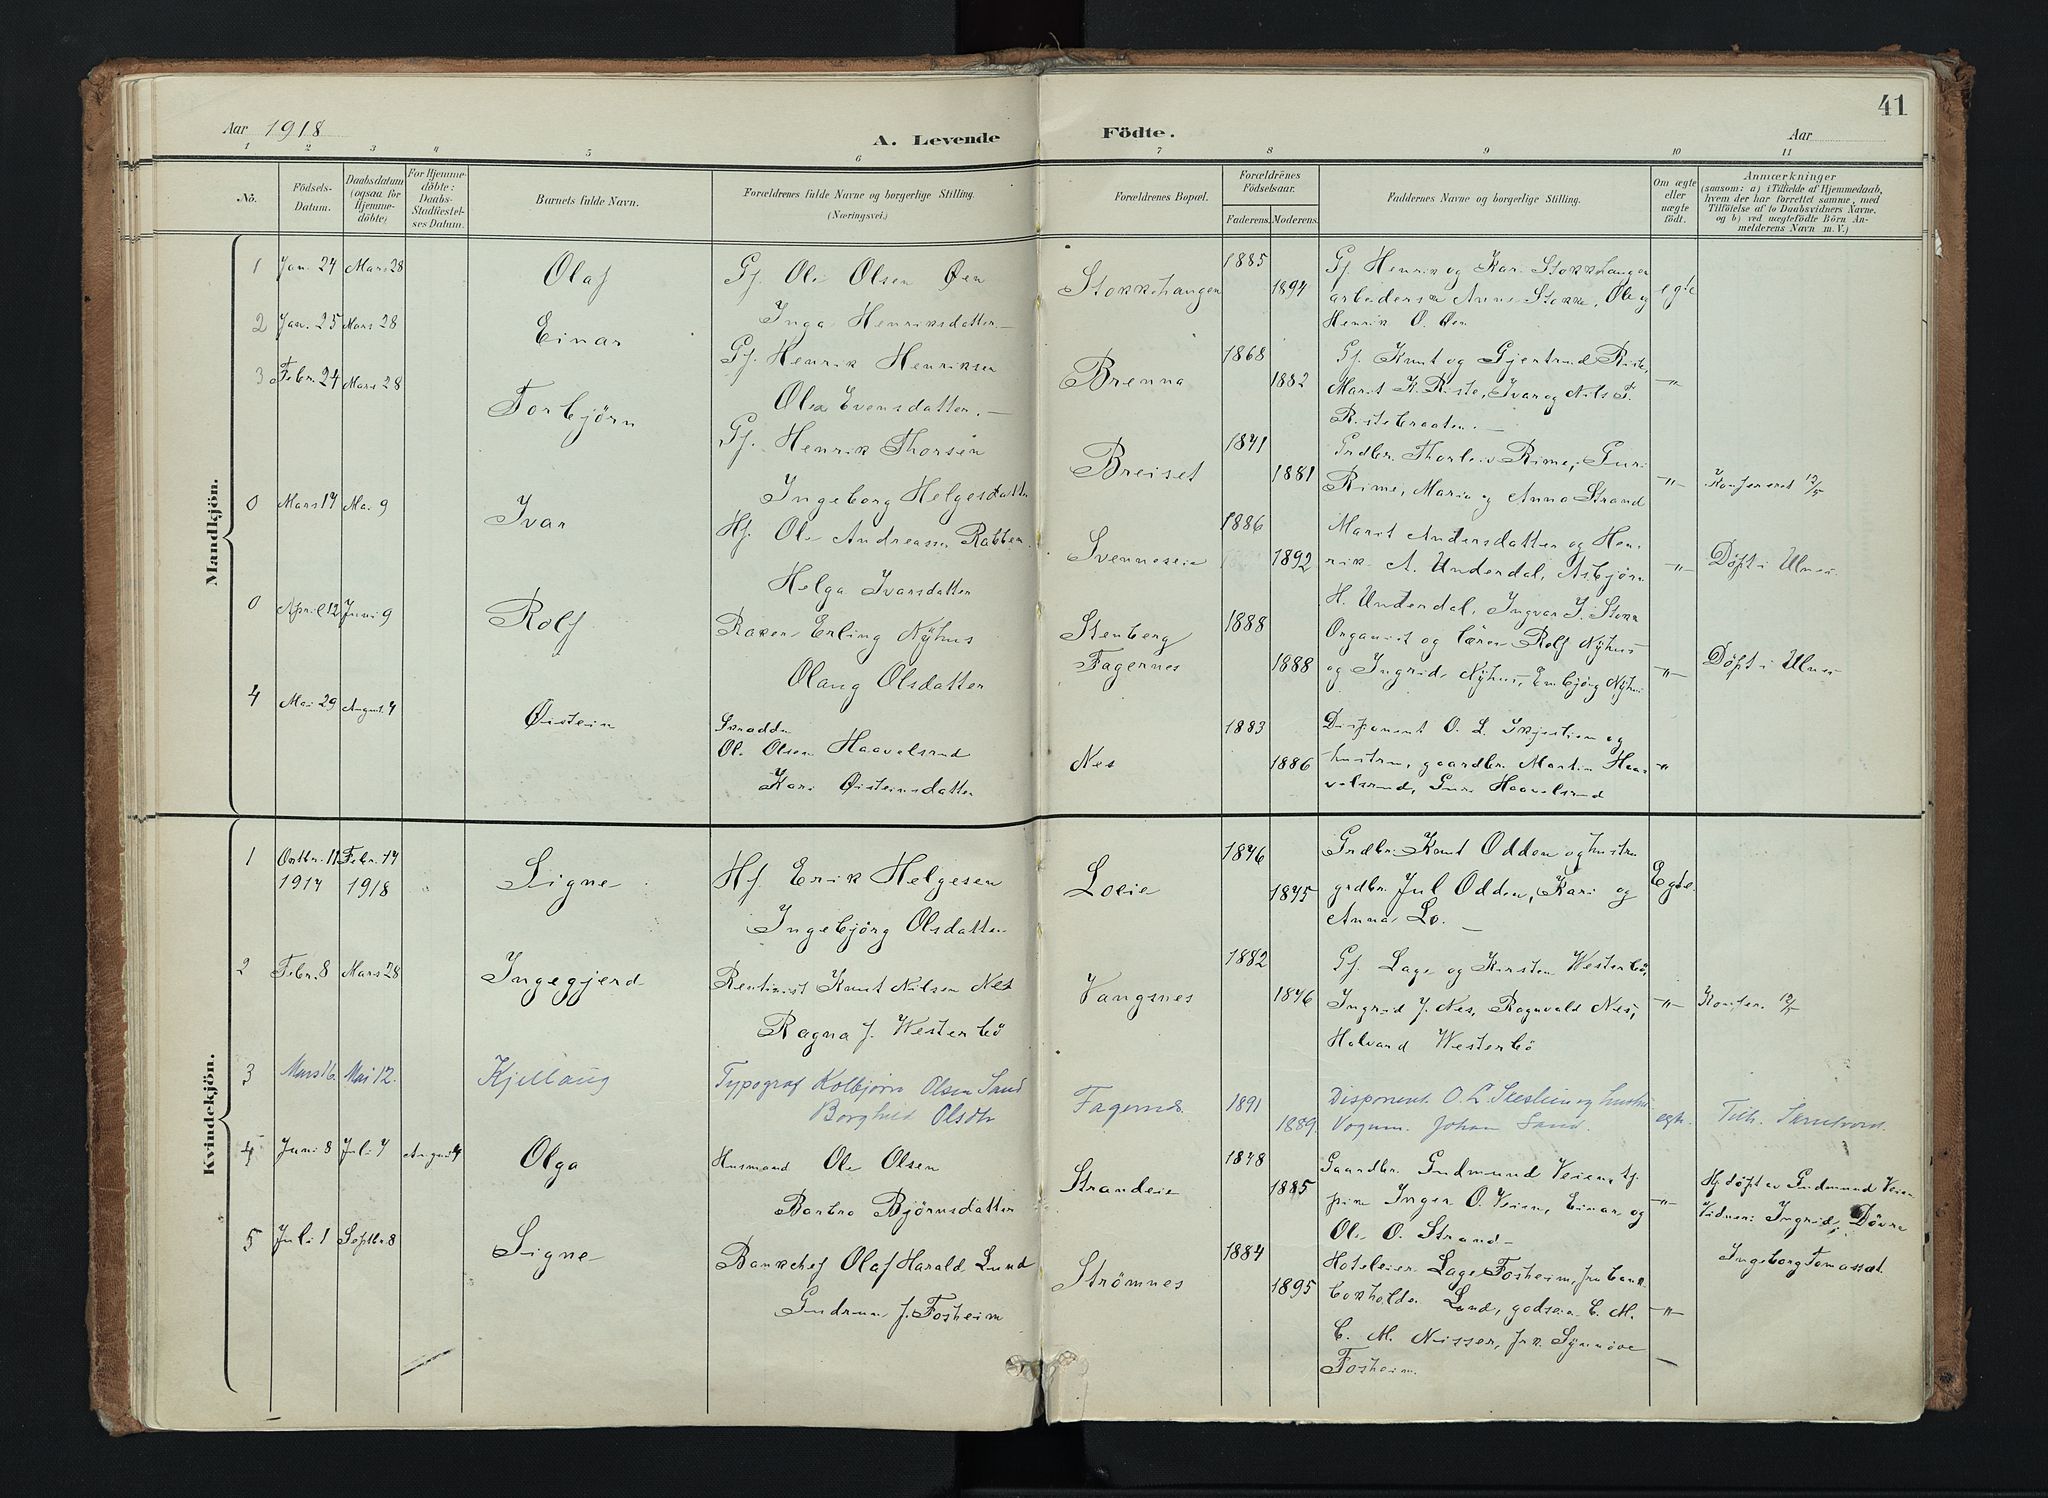 Aar 1918
A. Levende
Födte.
Aar
41
1 2 3 4 5 6 7 8 9 10 11
No.
Födsels-
Datum.
Daabsdatum
(ogsaa for
Hjemme-
döbte)
For Hjemme-
döbte:
Daabs-
Stadfæstel-
ses Datum.
Barnets fulde Navn.
Forældrenes fulde Navne og borgerlige Stilling.
(Næringsvei.)
Forældrenes Bopæl.
Forældrenes
Födselsaar.
Faderens. Moderens.
Faddernes Navne og borgerlige Stilling.
Om ægte
eller
uægte
födt.
Anmærkninger
(saasom: a) i Tilfælde af Hjemmedaab,
hvem der har forrettet samme, med
Tilföielse af to Daabsvidners Navne,
og b) ved uægtefödte Börn An-
melderens Navn m. V.)
Mandkjön.
1 Jan. 24 Mars 28 Olaf Gf. Ole Olsen Øen
Inga Henriksdatter.
Stokkehaugen 1885 1894
Gf. Henrik og Kari Stokkehaugen
arbeiderske Anne Stokke, Ole og
Henrik O. Øen
egte
2 Jan. 25 Mars 28 Einar Gf. Henrik Henriksen
Olea Evensdatter. —
Brenna 1868 1882
Gf. Knut og Gjertrud Riste,
Marit K. Riste, Ivar og Nils T.
Ristebraaten. —
"
3 Febr. 24 Mars 28 Torbjörn Gf. Henrik Thorsen
Ingeborg Helgesdatter
Breiset 1871 1881
Grdbr. Thorleiv Rime, Guri
Rime, Maria og Anna Strand
" Konfereret 12/5
0 Mars 17 Ma. 9 Ivar Hf. Ole Andreassen Rabben.
Helga Ivarsdatter
Svenneseie 1886 1892
Marit Andersdatter og Hen-
rik A. Underdal, Asbjörn
H. Underdal, Ingvar I. Stokk
" Döpt i Ulnes.
0 April 12 Juni 9 Rolf Baker Erling Nÿhus
Olaug Olsdatter
Stenberg
Fagernes 1888 1888
Organist og lærer Rolf Nÿhus
og Ingrid Nÿhus, Embjörg Nÿhus
" Döpt i Ulnes
4 Mai 29 August 4 Øistein
Ole Olsen Haavelsrud
Kari Øisteinsdatter
Nes 1883 1886
Disponent O. L. Skjestien og
hustru, gaardbr. Martin Haa-
velsrud, Guri Haavelsrud
"
Kvindekjön.
1 Oktbr. 11 Febr. 17
1917 1918 Signe Hf. Erik Helgesen
Ingebjörg Olsdatter
Loeie 1876 1875
Grdbr. Knut Odden og hustru
grdbr. Jul Odden, Kari og
Anna Lo. —
Egte
2 Febr. 8 Mars 28 Ingegjerd Rentenist Knut Nilsen Nes
Ragna J. Westerbö
Vangsnes 1882 1876
Gf. Lage og Kirsten Westerbö,
Ingrid J. Nes, Ragnvald Nes,
Halvard Westerbö
" Konfer. 12/5
3 Mars 16. Mai 12. Kjellaug Typograf Kolbjørn Olsen Sand
Borghild Olsdtr
Fagernes. 1891 1889.
Disponent O. L. Skjestien og hustru
Vognm. Johan Sand.
egte. Tilh. Skrutvold.
4 Juni 8 Juli 7 August 4 Olga Husmand Ole Olsen
Barbro Björnsdatter
Strandeie 1878 1885
Gaardbr. Gudmund Veien, tj.
pike Inger O. Veien, Einar og
Ole O. Strand —
" Hj. döpt av Gudmund Veien
Vidner: Ingrid Dövre
Ingeborg Tomasset.
5 Juli 1 Septbr 8 Signe Bankchef Olaf Harald Lund
Gudrun J. Fosheim
Strømnes 1884 1895
Hoteleier Lage Fosheim, fru bank
bokholder Lund, godseier C. M.
C. M. Nisser, frk. Sÿnnöve
Fosheim.
"